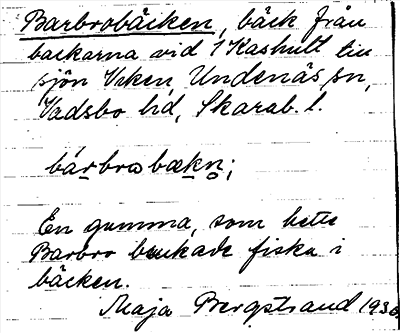 Barbrobäcken, bäck från
backarna vid 1 Kashult till
sjön Viken, Undenäs sn,
Vadsbo hd, Skarab. l.
bárbra bækn;
En gumma, som hette
Barbro brukade fiska i
bäcken.
Maja Bergstrand 1930.